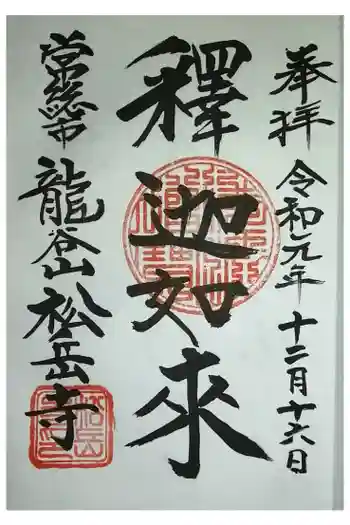 奉拝
令和元年十二月十六日
釋迦如來
常総市
龍谷山松岳寺